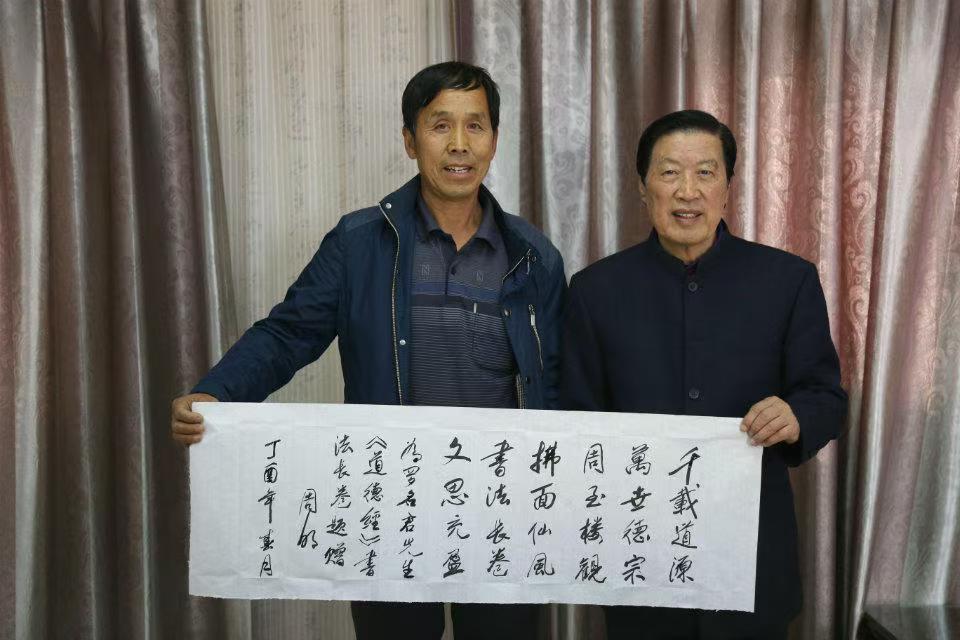 千載道源
萬世德宗
周至樓觀
拂面仙風
書法長卷
文思充盈
為羅名君先生
《道德經》書
法長卷題贈
周明
丁酉年春月